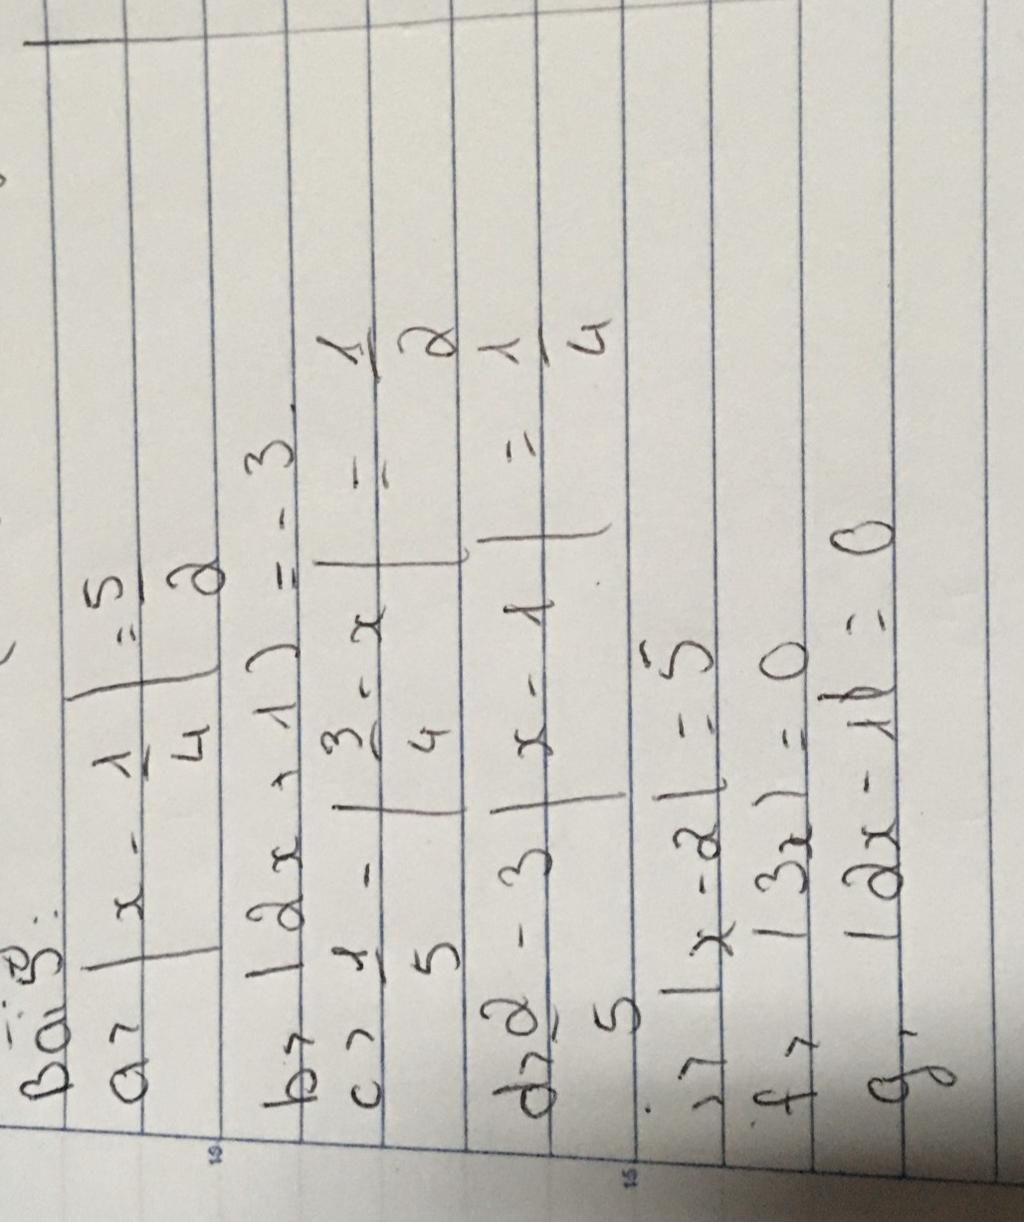 Bài 3:
a, |x - 1/4| = 5/2
b, |2x + 1| = - 3.
c, 1/5 - |3/4 - x| = 1/2
d, 2/5 - 3|x - 1| = 1/4
i, |x - 2| = 5
f, |3x| = 0
g, |2x - 1| = 0
15
15